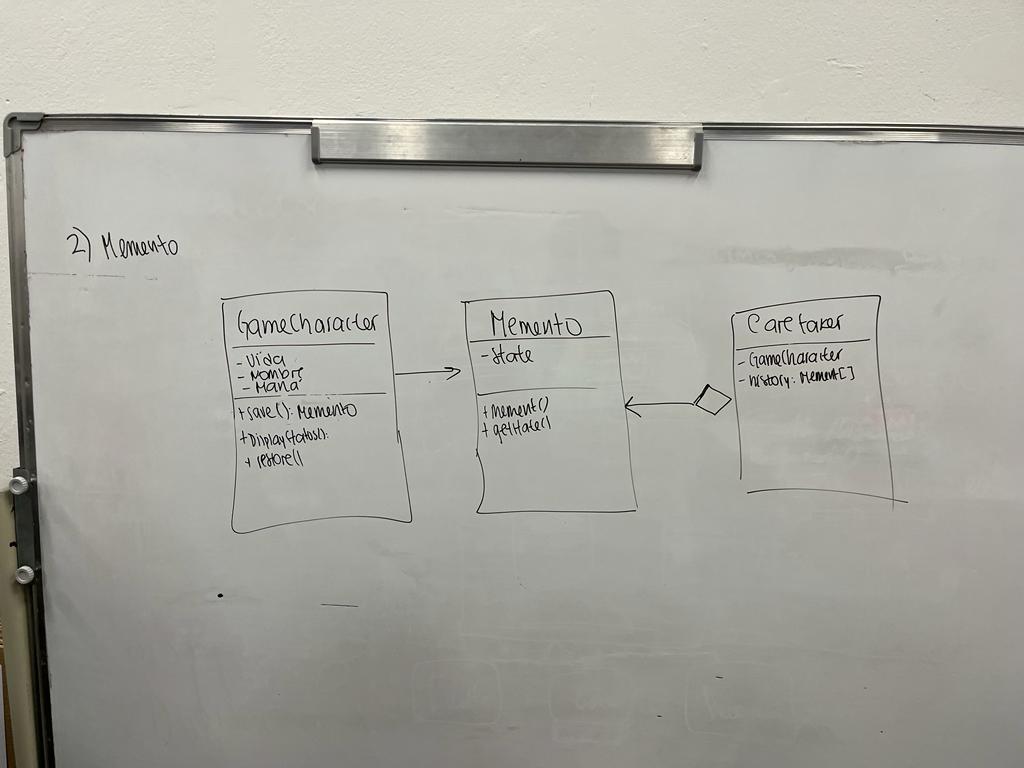 2) Memento
GameCharacter
- Vida
- Nombre
- Mana
+ save(): Memento
+ DisplayStatus():
+ restore()
Memento
- State
+ mement()
+ getState()
Caretaker
- GameCharacter
- history: Mement[]